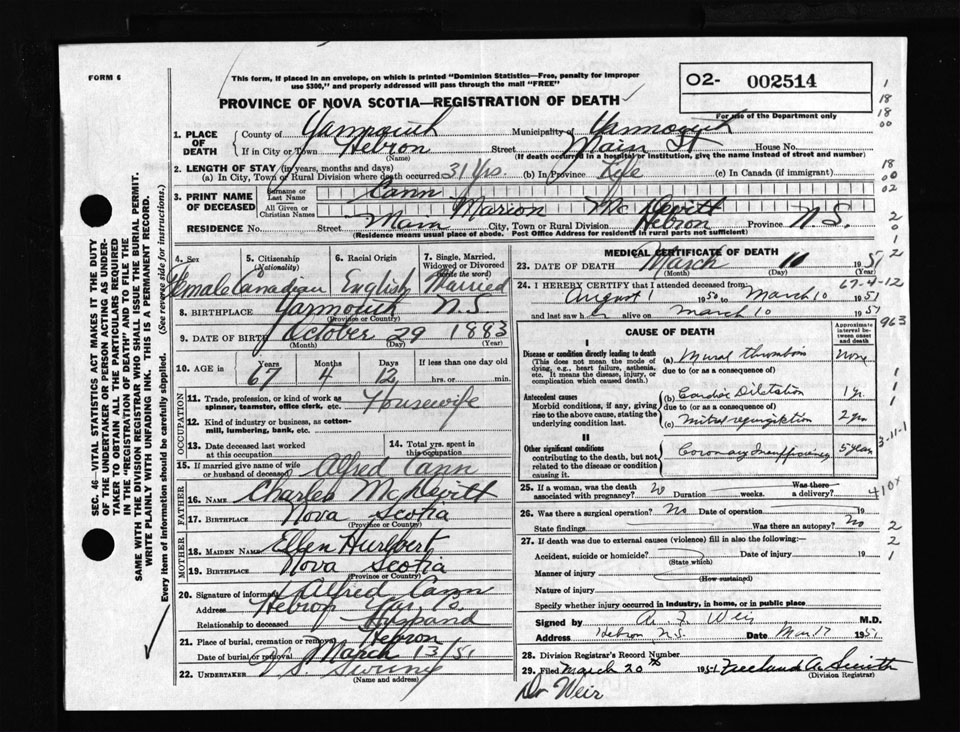 FORM 6
This form, if placed in an envelope, on which is printed "Dominion Statistics—Free, penalty for improper
use $300," and properly addressed will pass through the mail "FREE"
PROVINCE OF NOVA SCOTIA—REGISTRATION OF DEATH
O2- 002514
For use of the Department only
1. PLACE OF DEATH
County of Yarmouth Municipality of Yarmouth
If in City or Town Hebron (Name) Street Main St House No.
(If death occurred in a hospital or institution, give the name instead of street and number)
2. LENGTH OF STAY (in years, months and days)
(a) In City, Town or Rural Division where death occurred 31 yrs. (b) In Province Life (c) In Canada (if immigrant)
3. PRINT NAME OF DECEASED
Surname or Last Name Cann
All Given or Christian Names Marion McDevitt
RESIDENCE No. Street Main City, Town or Rural Division Hebron Province N.S.
(Residence means usual place of abode. Post Office Address for residents in rural parts not sufficient)
4. Sex Female
5. Citizenship (Nationality) Canadian
6. Racial Origin English
7. Single, Married, Widowed or Divorced (write the word) Married
8. BIRTHPLACE Yarmouth N.S. (Province or Country)
9. DATE OF BIRTH October 29 1883
(Month) (Day) (Year)
10. AGE in Years 67 Months 4 Days 12 If less than one day old hrs. or min.
OCCUPATION
11. Trade, profession, or kind of work as spinner, teamster, office clerk, etc. Housewife
12. Kind of industry or business, as cotton-mill, lumbering, bank, etc.
13. Date deceased last worked at this occupation
14. Total yrs. spent in this occupation
15. If married give name of wife or husband of deceased Alfred Cann
FATHER
16. NAME Charles McDevitt
17. BIRTHPLACE Nova Scotia (Province or Country)
MOTHER
18. MAIDEN NAME Ellen Hurlbert
19. BIRTHPLACE Nova Scotia (Province or Country)
20. Signature of informant Alfred Cann
Address Hebron Yar. Co.
Relationship to deceased Husband
21. Place of burial, cremation or removal Hebron
Date of burial or removal March 13/51
22. UNDERTAKER Sweeny
(Name and address)
MEDICAL CERTIFICATE OF DEATH
23. DATE OF DEATH March 10 1951
(Month) (Day) (Year)
24. I HEREBY CERTIFY that I attended deceased from 67-4-12
August 1 1950 to March 10 1951
and last saw h alive on March 10 1951
CAUSE OF DEATH
Approximate interval between onset and death
I
Disease or condition directly leading to death (a) Mural thrombus none
(This does not mean the mode of dying, e.g., heart failure, asthenia, etc. It means the disease, injury, or complication which caused death.)
due to (or as a consequence of)
Antecedent causes (b) Cardiac Dilatation 1 yr.
Morbid conditions, if any, giving rise to the above cause, stating the underlying condition last.
due to (or as a consequence of)
(c) Mitral regurgitation 2 yrs
II
Other significant conditions
contributing to the death, but not related to the disease or condition causing it. Coronary Insufficiency 5 years
25. If a woman, was the death associated with pregnancy? No Duration weeks. Was there a delivery?
26. Was there a surgical operation? No Date of operation 19
State findings Was there an autopsy? No
27. If death was due to external causes (violence) fill in also the following:—
Accident, suicide or homicide? (State which) Date of injury 19
Manner of injury
(How sustained)
Nature of injury
Specify whether injury occurred in industry, in home, or in public place
Signed by A. F. Weir M.D.
Address Hebron N.S. Date Mar 17 1951
28. Division Registrar's Record Number
29. Filed March 20th 1951 Freeland A. Smith
(Division Registrar)
Dr Weir
SEC. 46—VITAL STATISTICS ACT MAKES IT THE DUTY
OF THE UNDERTAKER OR PERSON ACTING AS UNDER-
TAKER TO OBTAIN ALL THE PARTICULARS REQUIRED
IN THE "REGISTRATION OF DEATH" AND TO FILE THE
SAME WITH THE DIVISION REGISTRAR WHO SHALL ISSUE THE BURIAL PERMIT.
WRITE PLAINLY WITH UNFADING INK. THIS IS A PERMANENT RECORD.
Every item of information should be carefully supplied. (See reverse side for instructions.)
1
18
18
00
18
00
02
2
0
1
2
963
1
1
1
3-11-1
410x
2
2
1